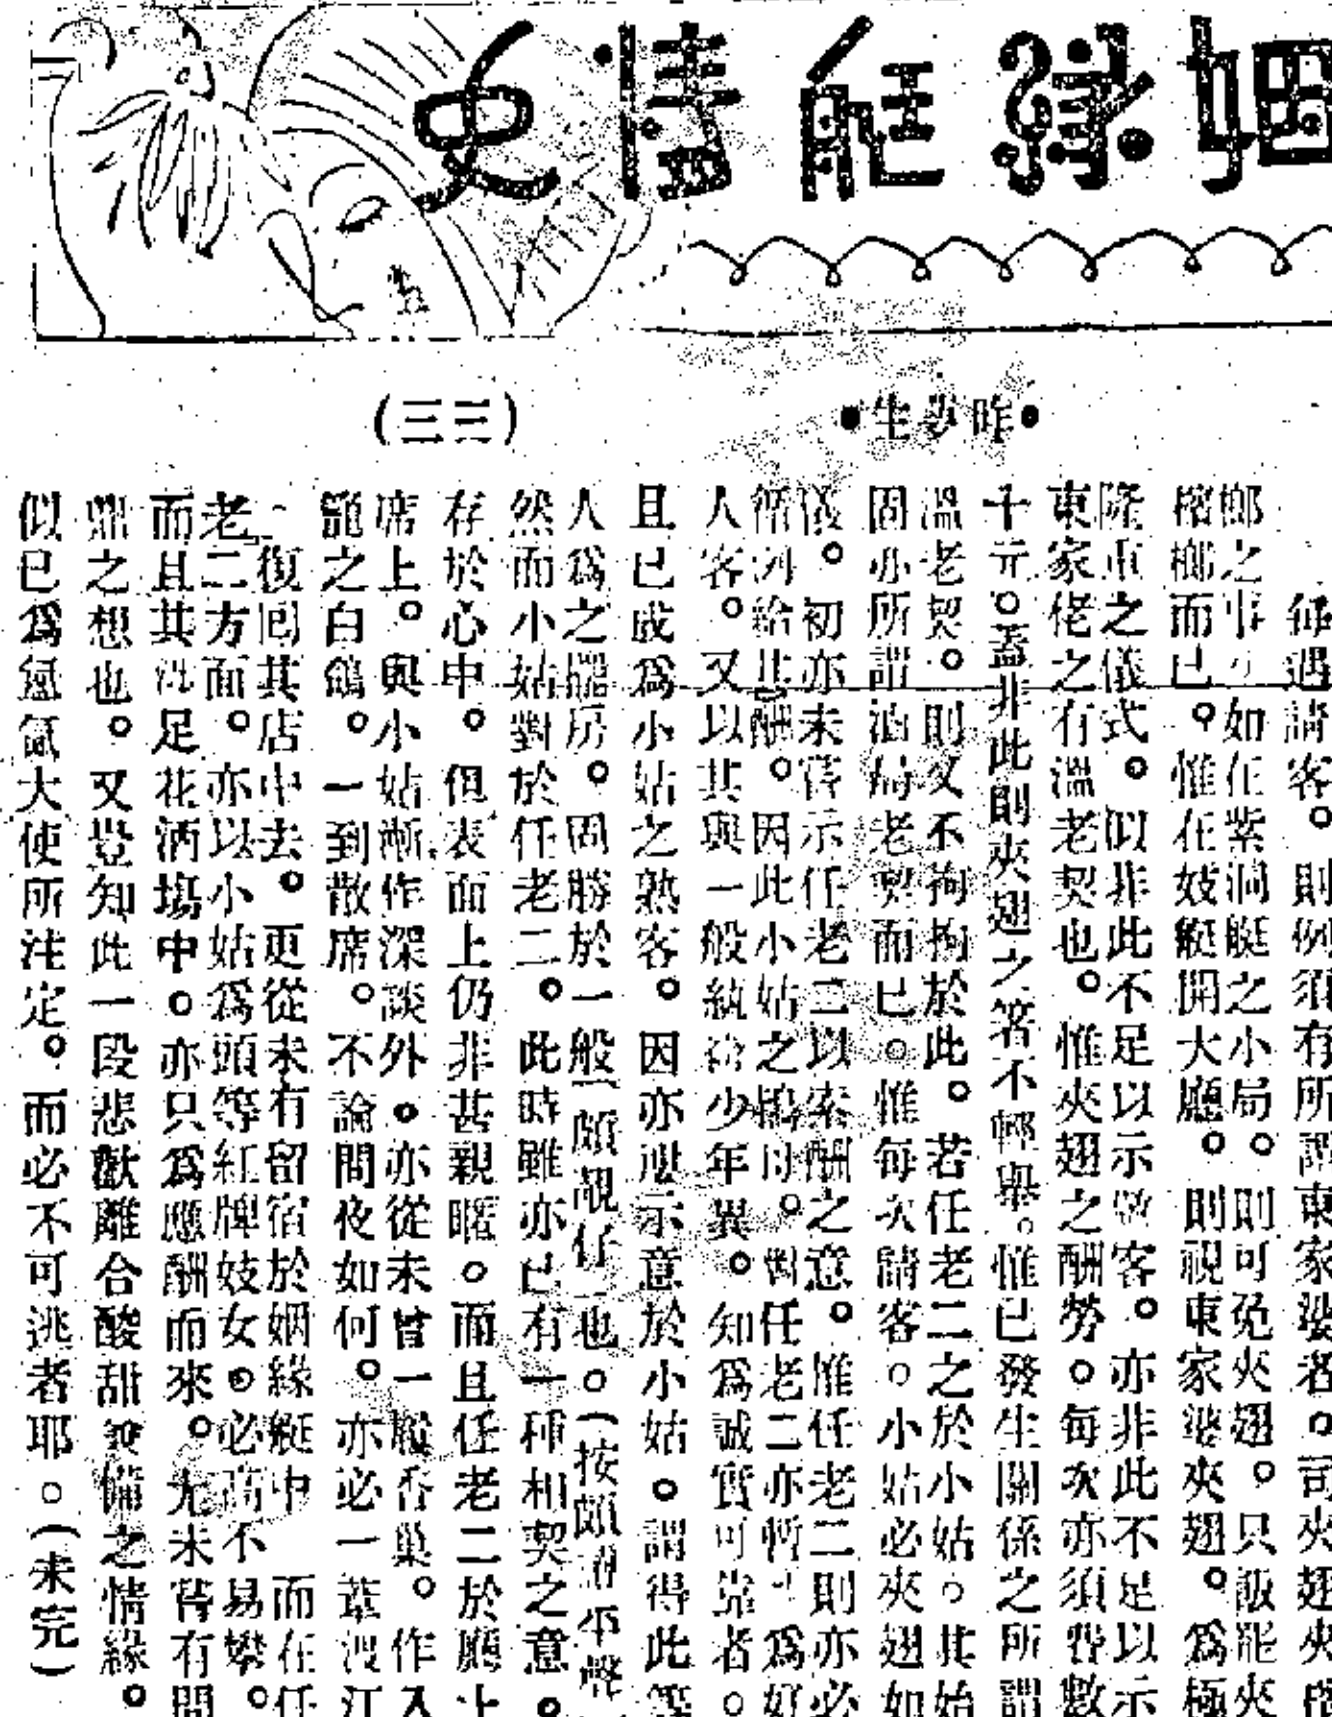 姻緣艇情史
昨夢生
(三三)
每遇請客。則例須有所謂東家婆者。司夾翅夾
榔之事。如在紫洞艇之小局。則可免夾翅。只敬能夾
檳榔而已。惟在妓艇開大廳。則視東家婆夾翅。為極
隆重之儀式。似非此不足以示敬客。亦非此不足以示
東家佬之有溫老契也。惟夾翅之酬勞。每次亦須費數
十元。蓋非此則夾翅之箸不輕舉。惟已發生關係之所謂
溫老契。則又不拘拘於此。若任老二之於小姑。其始
固亦所謂酒局老契而已。惟每次請客。小姑必夾翅如
儀。初亦未嘗示任老二以索酬之意。惟任老二則亦必
循例給其酬。因此小姑之鴇母。對任老二亦暫 為好
人客。又以其與一般紈袴少年異。知為誠實可靠者。
且已成為小姑之熟客。因亦示意於小姑。謂得此等
人為之擺房。固勝於一般(頗靚仔)也。(按頗讀平聲
然而小姑對於任老二。此時雖亦已有一種相契之意。
存於心中。但表面上仍非甚親暱。而且任老二於廳上
席上。與小姑漸作深談外。亦從未曾一履香巢。作入
籠之白鴿。一到散席。不論問夜如何。亦必一葦渡江
。復回其店中去。更從未有留宿於姻緣艇中 而在任
老二方面。亦以小姑為頭等紅牌妓女。必高不易攀。
而且其涉足花酒場中。亦只為應酬而來。尤未嘗有問
鼎之想也。又豈知此一段悲歡離合酸甜兼備之情緣。
似已為氤氳大使所注定。而必不可逃者耶。(未完)